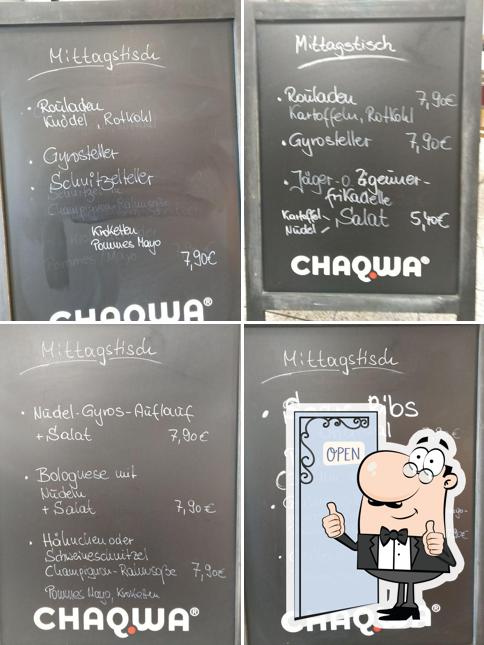 Mittagstisch
• Rouladen
Knödel, Rotkohl
• Gyrosteller
• Schnitzelteller
Kroketten
Pommes Mayo
7,90€
CHAQWA®
Mittagstisch
• Rouladen 7,90€
Kartoffeln, Rotkohl
• Gyrosteller 7,90€
• Jäger- o. Zigeuner-
frikadelle
Kartoffel-, Salat 5,40€
Nudel-
CHAQWA®
Mittagstisch
• Nudel-Gyros-Auflauf
+ Salat 7,90€
• Bolognese mit
Nudeln
+ Salat 7,90€
• Hähnchen oder
Schweineschnitzel
Champignon-Rahmsoße 7,90€
Pommes Mayo, Kroketten
CHAQWA®
Mittagstisch
Ribs
OPEN